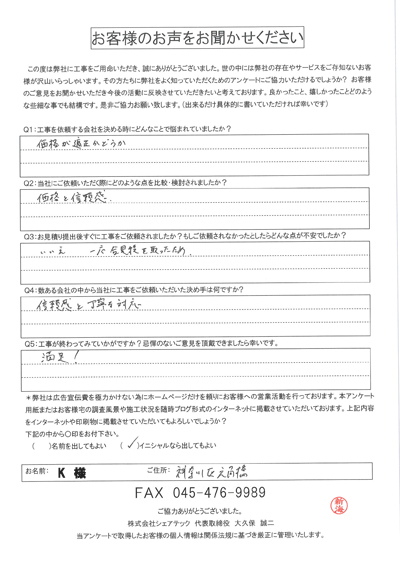 お客様のお声をお聞かせください
この度は弊社に工事をご用命いただき、誠にありがとうございました。世の中には弊社の存在やサービスをご存知ないお客
様が沢山いらっしゃいます。その方たちに弊社をよく知っていただくためのアンケートにご協力いただけるでしょうか？ お客様
のご意見をお聞かせいただき今後の活動に反映させていただきたいと考えております。良かったこと、嬉しかったことどのよう
な些細な事でも結構です。是非ご協力お願い致します。（出来るだけ具体的に書いていただければ幸いです）
Q1：工事を依頼する会社を決める時にどんなことで悩まれていましたか？
価格が適正かどうか
Q2：当社にご依頼いただく際にどのような点を比較・検討されましたか？
価格と信頼感.
Q3：お見積り提出後すぐに工事をご依頼されましたか？もしご依頼されなかったとしたらどんな点が不安でしたか？
いいえ 一応 合見積を取ったため.
Q4：数ある会社の中から当社に工事をご依頼いただいた決め手は何ですか？
信頼感と丁寧な対応
Q5：工事が終わってみていかがですか？忌憚のないご意見を頂戴できましたら幸いです。
満足！
＊弊社は広告宣伝費を極力かけない為にホームページだけを頼りにお客様への営業活動を行っております。本アンケート
用紙またはお客様宅の調査風景や施工状況を随時ブログ形式のインターネットに掲載させていただいております。上記内容
をインターネットや印刷物に掲載させていただいてもよろしいでしょうか？
下記の中から〇印をお付下さい。
（ ）名前を出してもよい （✓）イニシャルなら出してもよい
お名前： K 様 ご住所： 神奈川区六角橋
FAX 045-476-9989
ご協力ありがとうございました。
株式会社シェアテック 代表取締役 大久保 誠二
当アンケートで取得したお客様の個人情報は関係法規に基づき厳正に管理いたします。